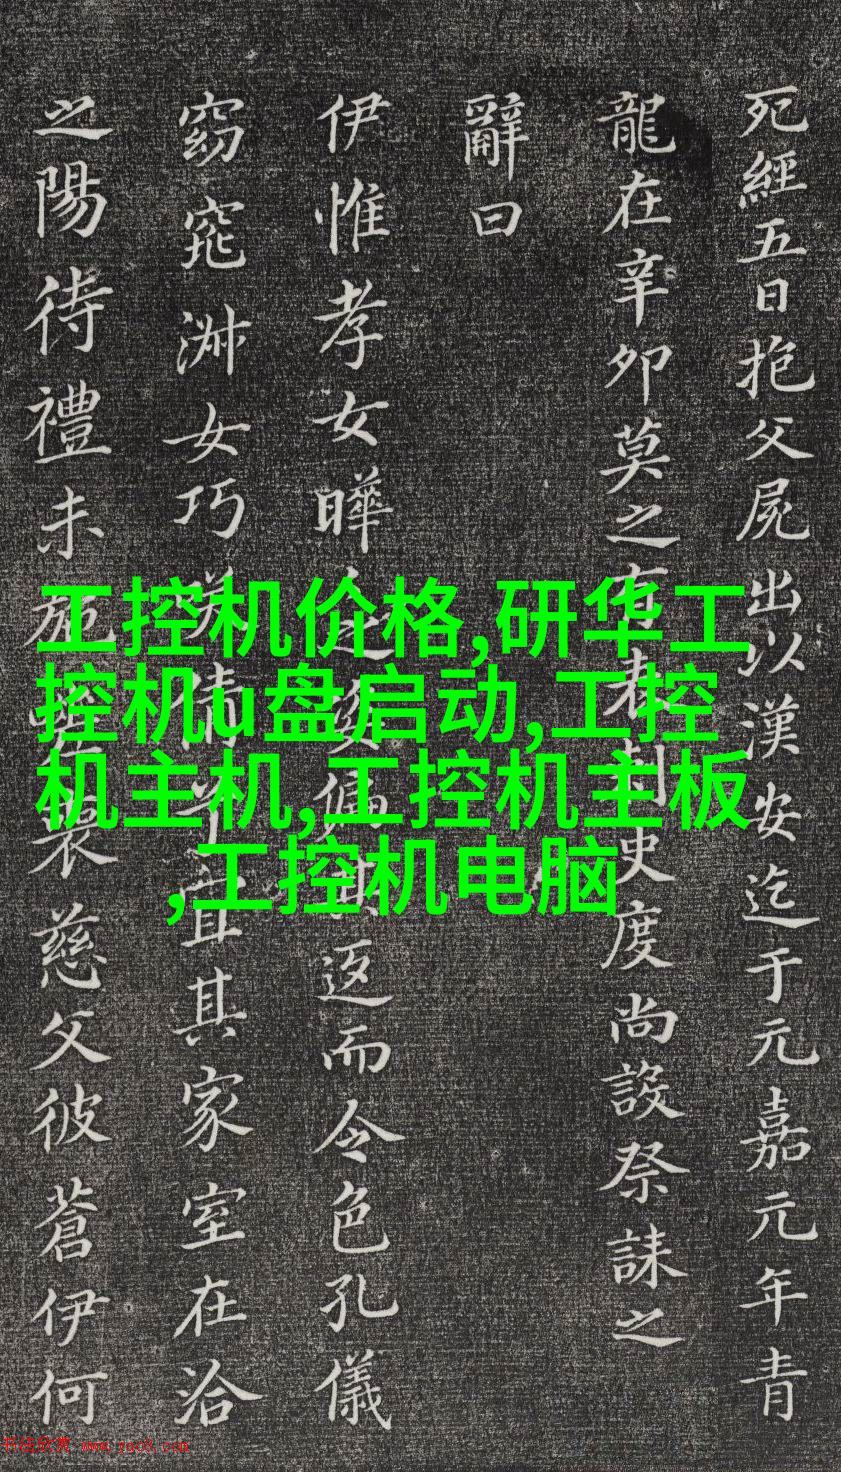 死經五日抱父屍出以漢安迄于元嘉元年青
龍在辛卯莫之有刺史度尚設祭誄之
辭曰
伊惟孝女曄之姿偏其返而令色孔儀
窈窕淑女巧笑倩兮宜其家室在洽
之陽待禮未施嗟喪慈父彼蒼伊何
工控机价格,研华工
控机u盘启动,工控
机主机,工控机主板
,工控机电脑